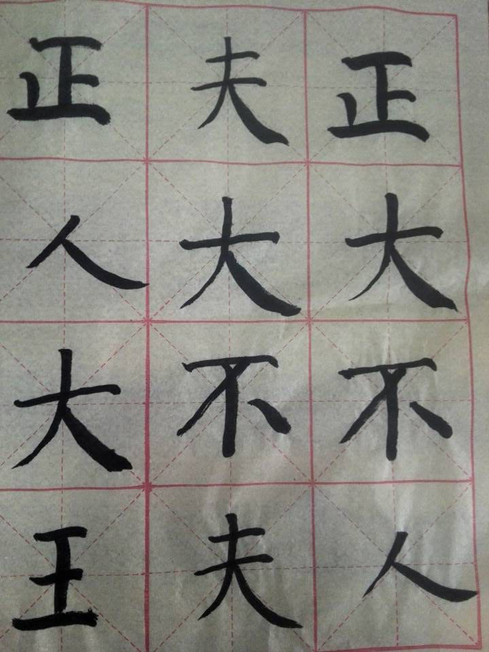 正大不人
夫大不夫
正人大王